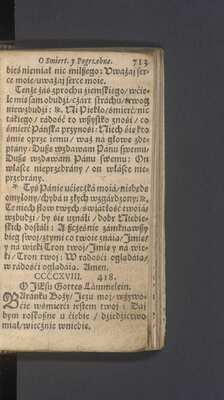 O Smierć. y Pogrzebne. 713
bieś niemiał nic milszego: Uważaj ser-
ce moie/uważaj serce moie.
Tenże zaś zprochu ziemskiego/wćie-
le mis sam obudzi/czart strachu/trwog
niewzbudzi: &. Ni Piekło/śmierć/nic
takiego/radość to wszystko znośi/co
śmierć Pańska przynośi: Niech śie kto
śmie oprze iemu/waż na głowe zbe-
przny: Dusza wzdawam Panu swemu/
Dusza wzdawam Panu swemu: On
własce nieprzebrany/on własce nie-
przebrany.
Tyś Panie ućieczka moiá/niebede
omylony/chyba u złych wzgardzony &.
Te niech słow twych/światłość twoiá
wzbudzi/by śie uználi/dobr Niebie-
skich dostáli: A szcześnie zámknawszy
bieg swoy/ztymi co twoie znáią/Jmie
y na wieki Tron twoy/Jmie y na wie-
ki/Tron twoy: W radośći oglądaią/
w radośći oglądaią. Amen.
CCCCXVIII. 418.
O JEsu Gottes Lämmelein.
BAránku Boży/Jezu moy/wzywo-
ćie wśmierći iestem twoy: Daj
bym roskoszne u ćiebie/dziedzictwo
miał/wiecznie wniebie.